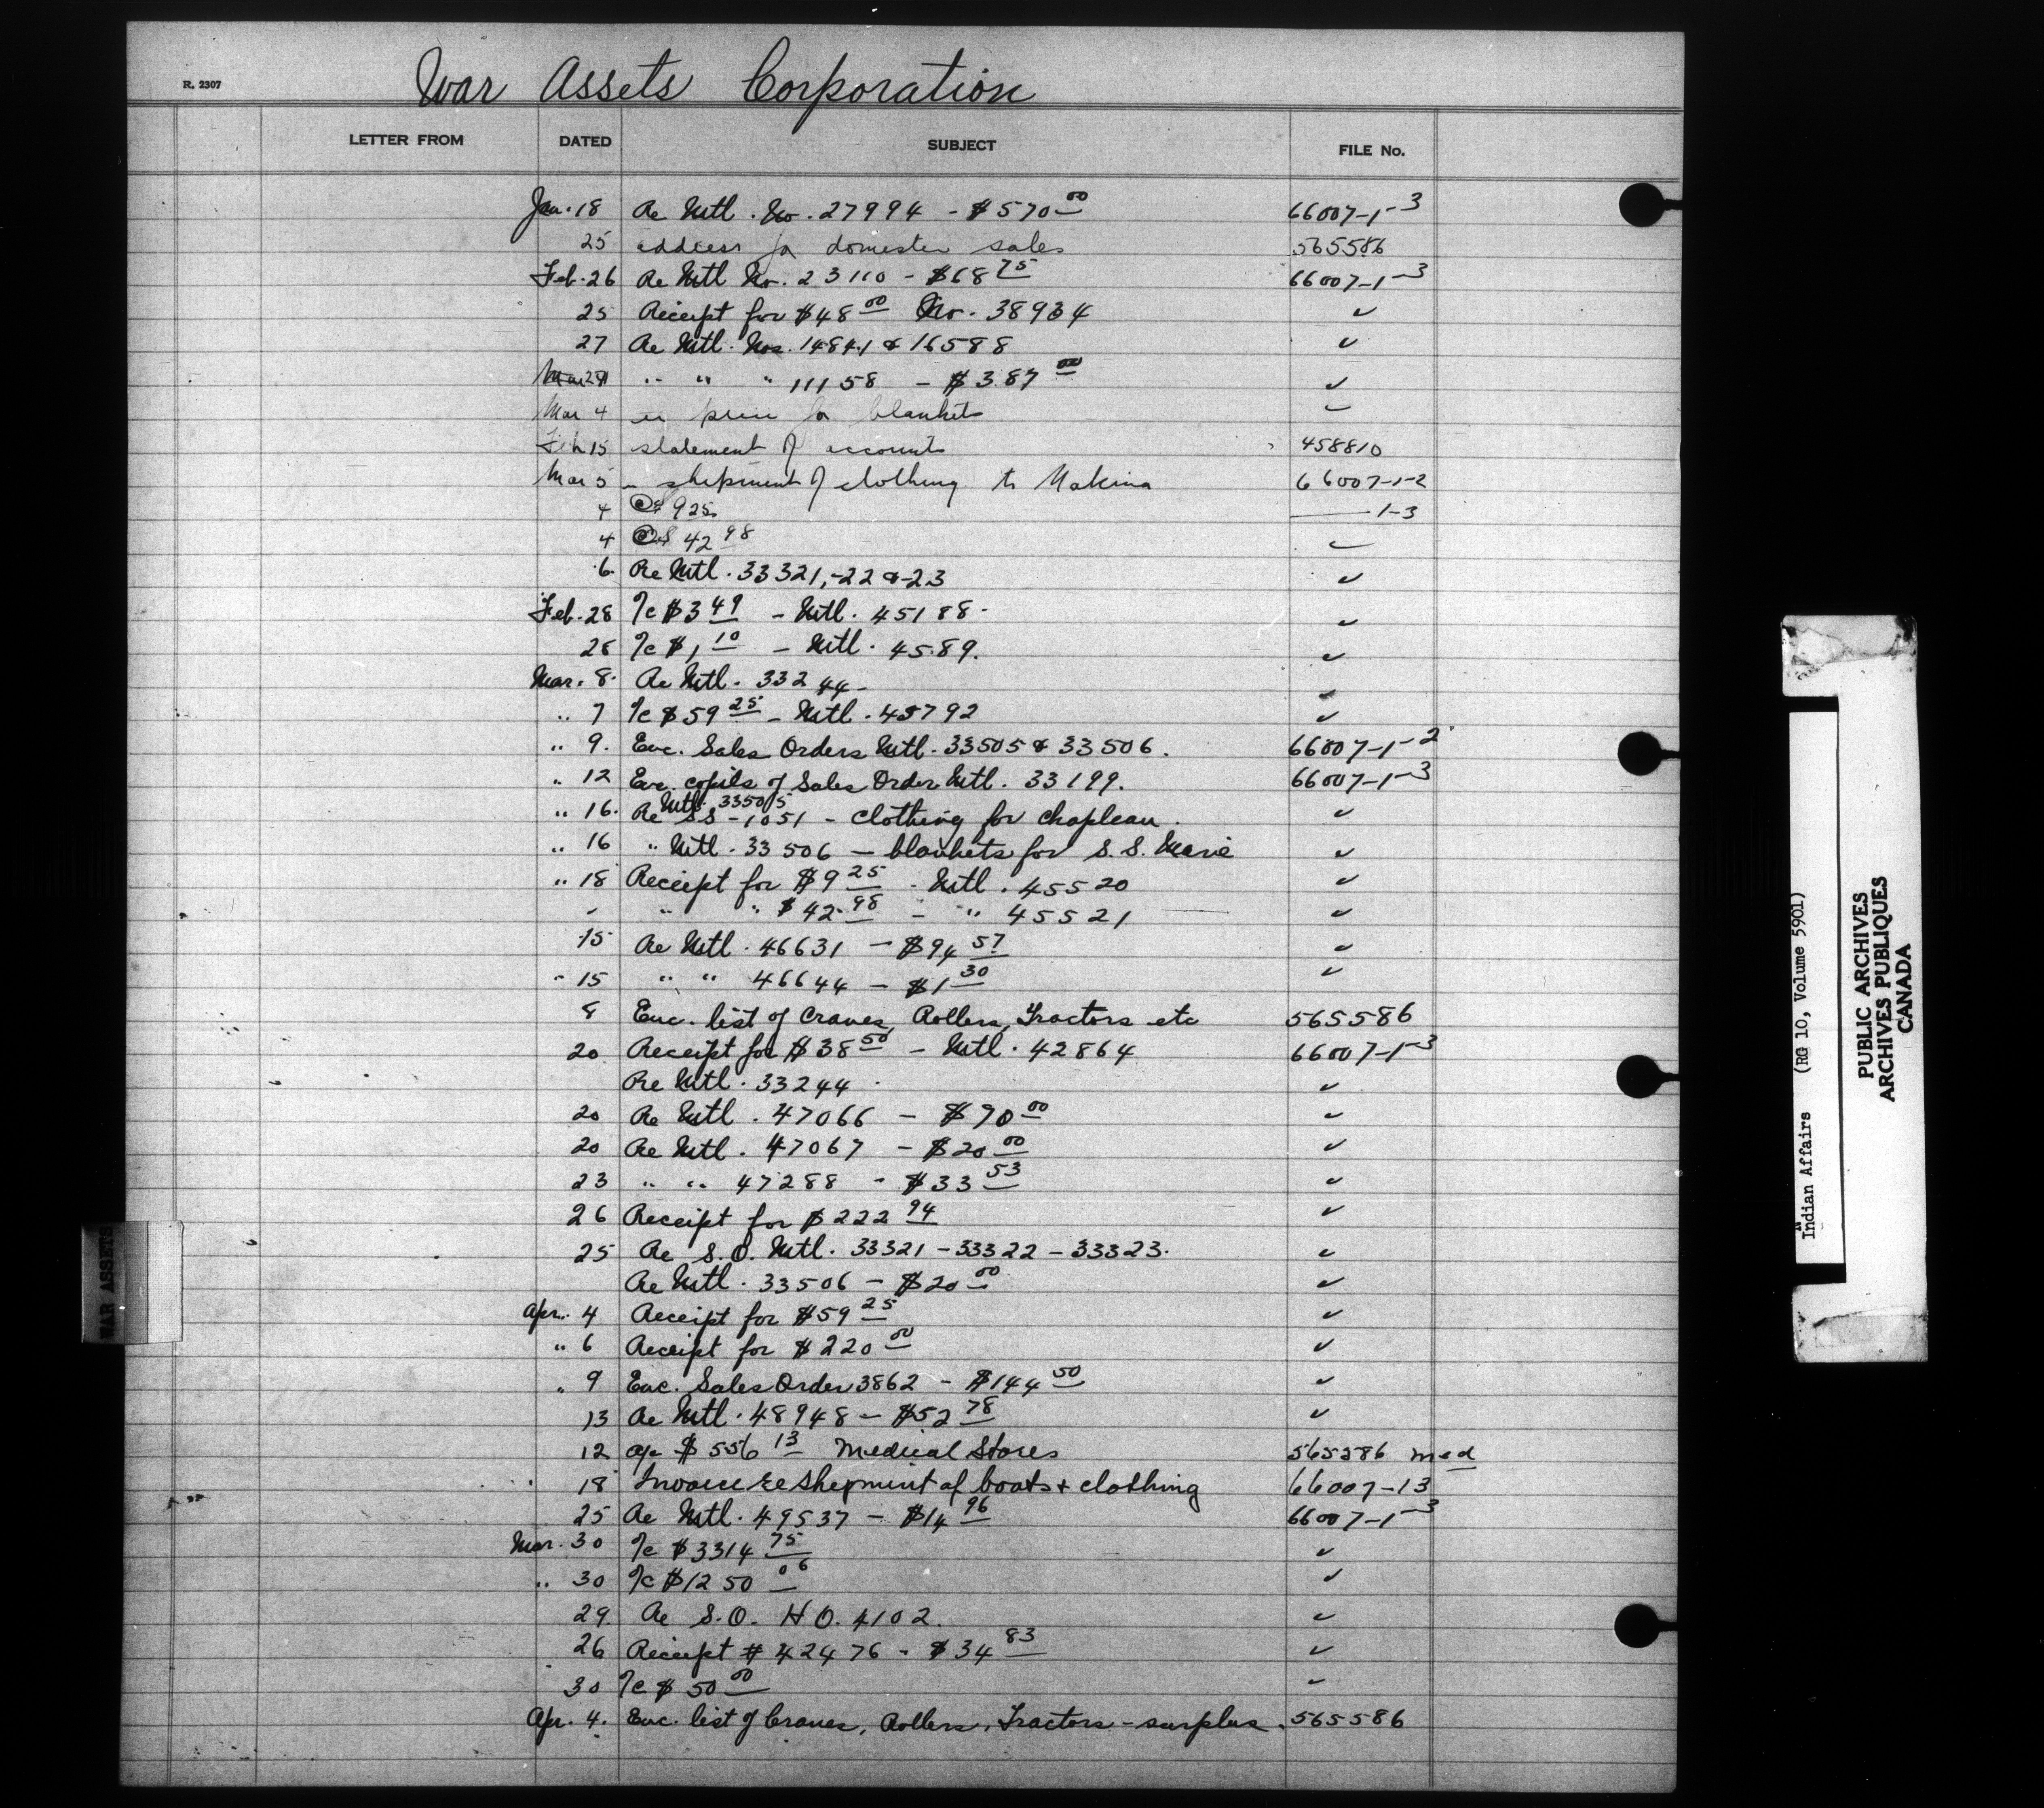 War Assets Corporation
R. 2307
LETTER FROM DATED SUBJECT FILE No.
Jan. 18 Re Mtl. No. 27994 - $570 00 66007-1-3
25 address for domestic sales 565586
Feb. 26 Re Mtl No. 23110 - $68 75 66007-1-3
25 Receipt for $48 00 No. 38934 ✓
27 Re Mtl. Nos. 14841 & 16588 ✓
" " " 11158 - $3.87 00 ✓
Mar 4 re price for blankets ✓
Feb 15 statement of accounts 458810
Mar 5 " shipment of clothing to Nakina 66007-1-2
4 925 —— 1-3
4 42 98 ✓
6. Re Mtl. 33321,-22 & -23 ✓
Feb. 28 %c $3 49 - Mtl. 45188. ✓
28 %c $1 10 - Mtl. 4589. ✓
Mar. 8. Re Mtl. 33244- ✓
" 7 %c $59 25 - Mtl. 45792 ✓
" 9. Enc. Sales Orders Mtl. 33505 & 33506. 66007-1-2
" 12 Enc. copies of Sales Order Mtl. 33199. 66007-1-3
Mtl. 33505
" 16. Re SS-1051 - clothing for Chapleau. ✓
" 16 " Mtl. 33506 - blankets for S. S. Marie ✓
" 18 Receipt for $9 25 - Mtl. 45520 ✓
" " " $42.98 - " 45521 ✓
15 Re Mtl. 46631 - $94 57 ✓
" 15 " " 46644 - $1 30 ✓
8 Enc. list of Cranes, Rollers, Tractors etc 565586
20 Receipt for $38 50 - Mtl. 42864 66007-1-3
Re Mtl. 33244. ✓
20 Re Mtl. 47066 - $70 00 ✓
20 Re Mtl. 47067 - $20 00 ✓
23 " " 47288 - $33 53 ✓
26 Receipt for $222 94 ✓
25 Re S.O. Mtl. 33321 - 33322 - 33323. ✓
Re Mtl. 33506 - $20 00 ✓
Apr. 4 Receipt for $59 25 ✓
" 6 Receipt for $220 00 ✓
" 9 Enc. Sales Order 3862 - $144 50 ✓
13 Re Mtl. 48948 - $52 78 ✓
12 $556 13 Medical Stores 565586 med
18 Invoice re shipment of boots + clothing 66007-13
25 Re Mtl. 49537 - $14 96 66007-1-3
Mar. 30 %c $3314 75 ✓
" 30 %c $1250 06 ✓
29 Re S.O. HO. 4102. ✓
26 Receipt # 42476 - $34 83 ✓
30 %c $50 00 ✓
Apr. 4. Enc. list of Cranes, Rollers, Tractors - surplus. 565586
WAR ASSETS
Indian Affairs (RG 10, Volume 5901)
PUBLIC ARCHIVES
ARCHIVES PUBLIQUES
CANADA